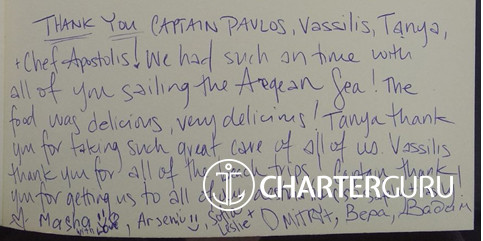 THANK YOU CAPTAIN PAVLOS, Vassilis, Tanya,
+ Chef Apostolis! We had such an time with
all of you sailing the Aegean Sea! The
food was delicious, very delicious! Tanya thank
you for taking such great care of all of us. Vassilis
thank you for all of the beach trips. Captain thank
you for getting us to all
Masha with love, Arseniy, Sofia + DMITRIY, Вера, Вадим
CHARTERGURU